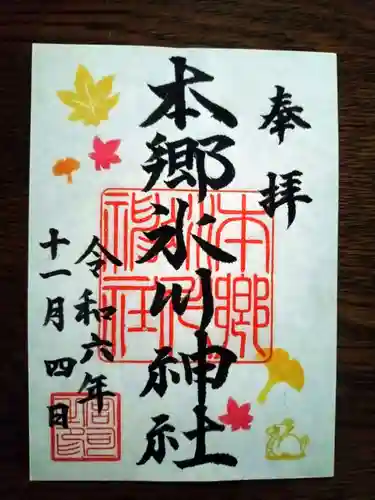 奉拝
本郷氷川神社
令和六年
十一月四日
本郷氷川神社